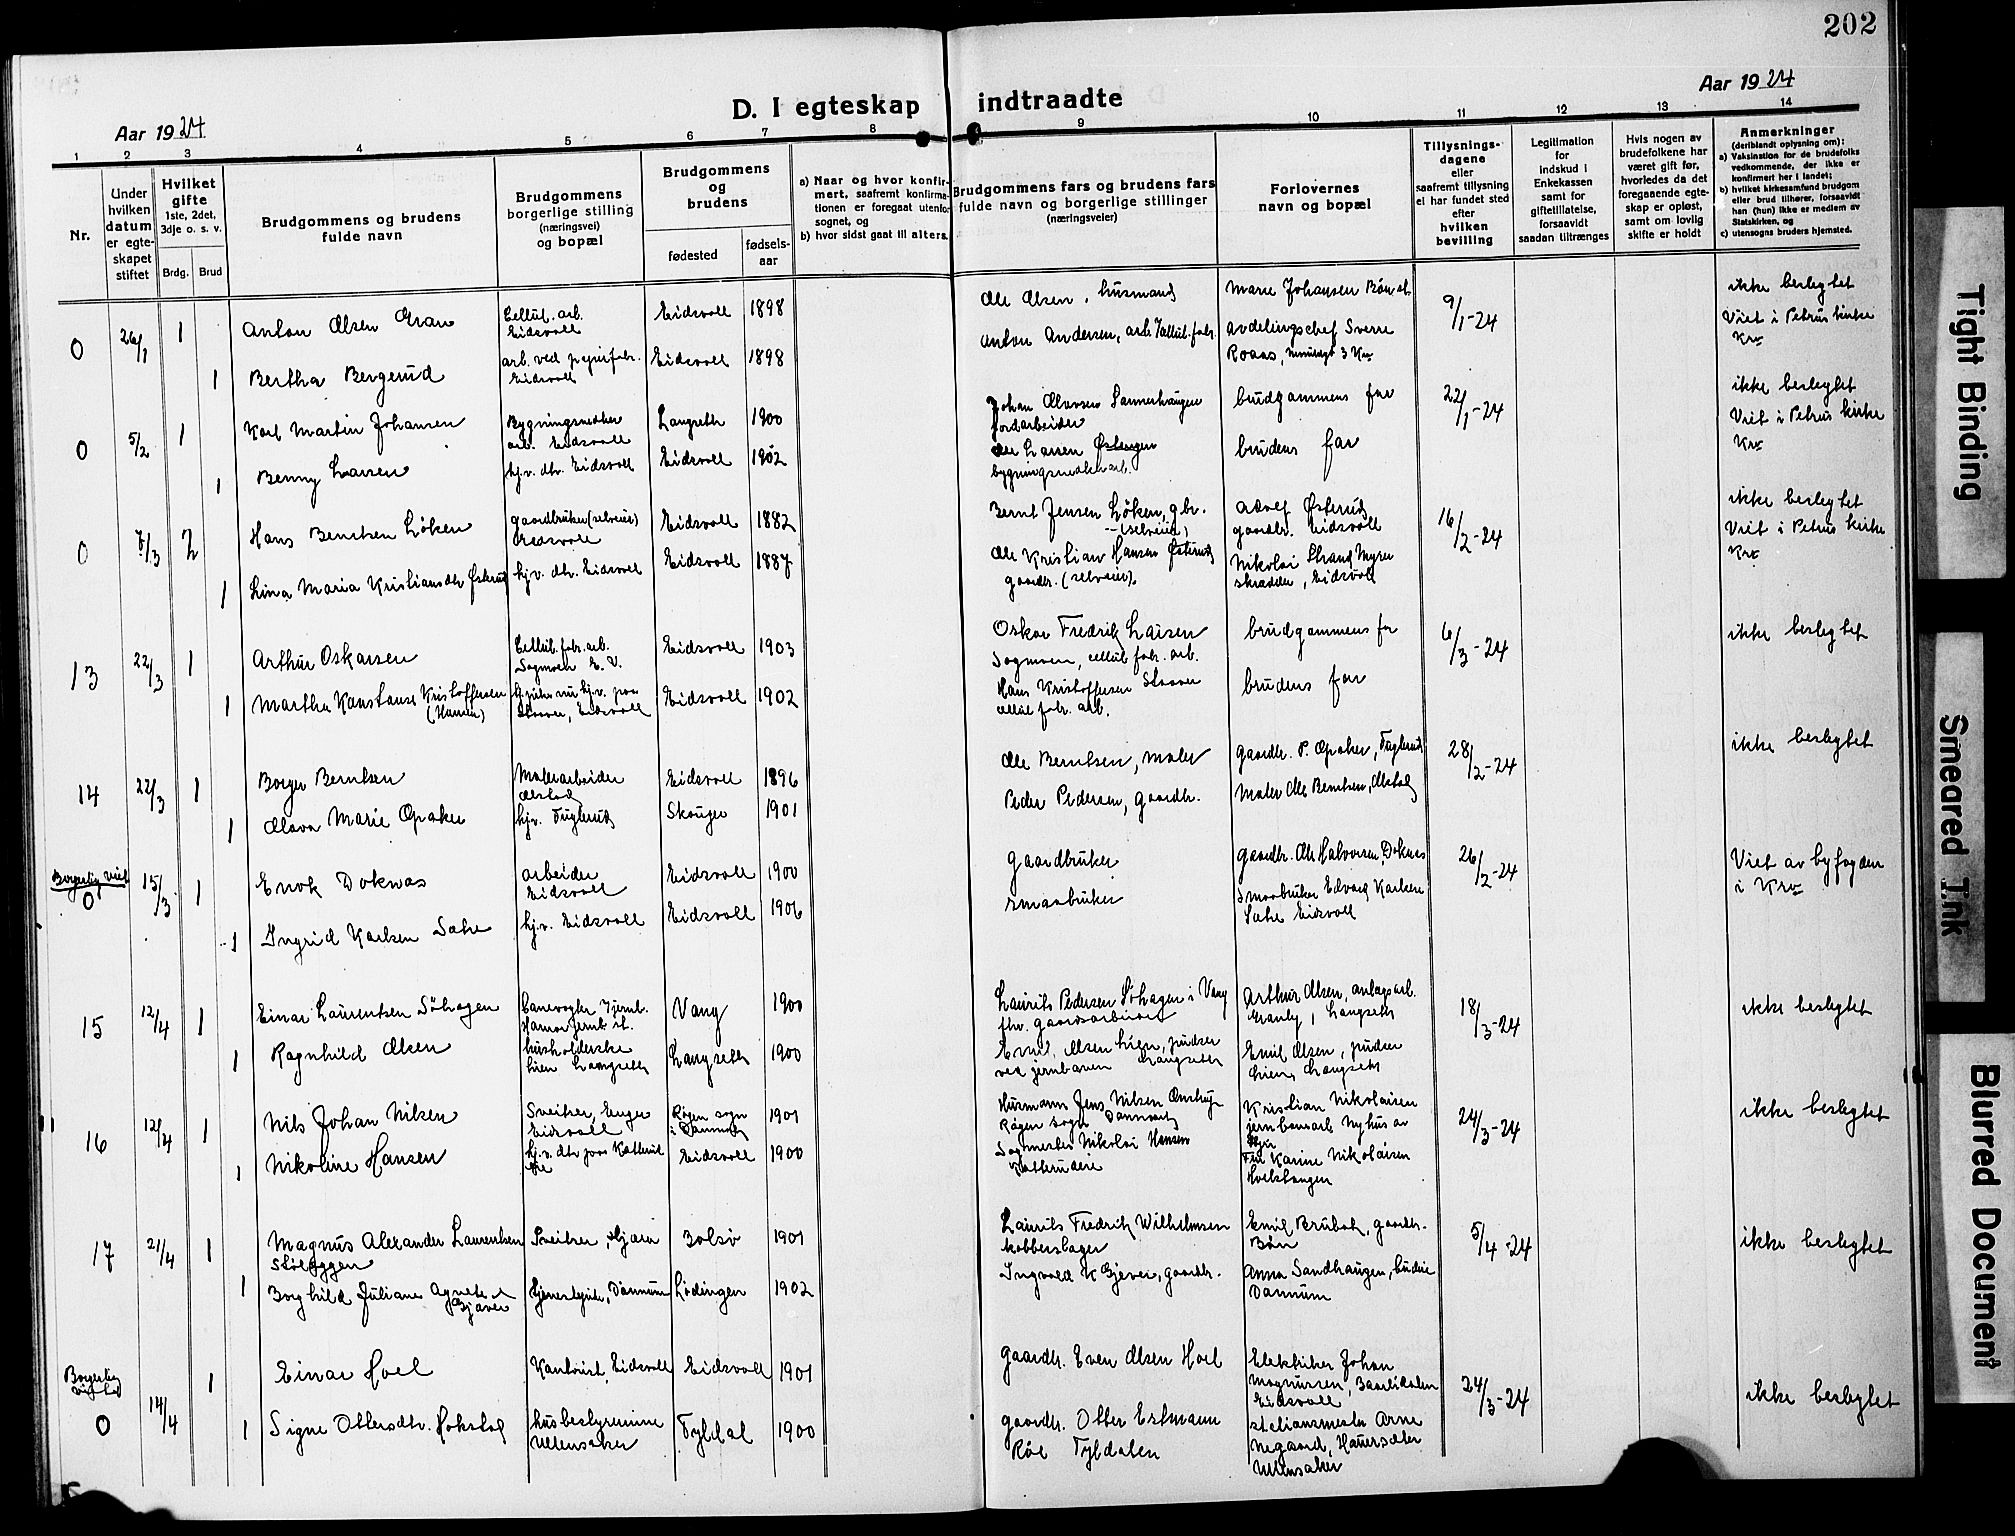 202
Aar 1924
D. I egteskap indtraadte
Aar 1924
1 2 3 4 5 6 7 8 9 10 11 12 13 14
Nr.
Under hvilken datum er egteskapet stiftet
Hvilket gifte 1ste, 2det, 3dje o. s. v.
Brdg. Brud
Brudgommens og brudens fulde navn
Brudgommens borgerlige stilling (næringsvei) og bopæl
Brudgommens og brudens
fødested
fødselsaar
a) Naar og hvor konfirmert, saafremt konfirmationen er foregaat utenfor sognet, og
b) hvor sidst gaat til alters.
Brudgommens fars og brudens fars fulde navn og borgerlige stillinger (næringsveier)
Forlovernes navn og bopæl
Tillysningsdagene eller saafremt tillysning ei har fundet sted efter hvilken bevilling
Legitimation for indskud i Enkekassen samt for giftetillatelse, forsaavidt saadan tiltrænges
Hvis nogen av brudefolkene har været gift før, hvorledes da det foregaaende egteskap er opløst, samt om lovlig skifte er holdt
Anmerkninger (deriblandt oplysning om):
a) Vaksination for de brudefolks vedkommende, der ikke er konfirmert her i landet;
b) hvilket kirkesamfund brudgom eller brud tilhører, forsaavidt han (hun) ikke er medlem av Statskirken, og
c) utensogns bruders hjemsted.
0 26/1 1 Anton Olsen Gran Cellul. arb. Eidsvoll Eidsvoll 1898 Ole Olsen, husmand Marie Johansen Bøn st. 9/1-24 ikke beslegtet
Viet i Petrus kirke Kra
1 Bertha Bergerud arb. ved papirfabr. Eidsvoll Eidsvoll 1898 Anton Andersen, arb. Cellul. fabr. avdelingschef Sverre Roaas,
0 5/2 1 Karl Martin Johansen Bygningssnedker arb. Eidsvoll Langseth 1900 Johan Olavsen Sannerhaugen jordarbeider brudgommens far 22/1-24 ikke beslegtet
Viet i Petrus kirke Kra
1 Benny Larsen hj.v. dtr. Eidsvoll Eidsvoll 1902 Ole Larsen Østengen bygningssnedker arb. brudens far
0 7/3 2 Hans Berntsen Löken gaardbruker (selveier) Eidsvoll Eidsvoll 1882 Bernt Jensen Löken, gbr. (selveier) Adolf Østerud gaardbr. Eidsvoll 16/2-24 ikke beslegtet
Viet i Petrus kirke Kra
1 Lina Maria Kristiansdtr Østerud hj.v. dtr. Eidsvoll Eidsvoll 1887 Ole Kristian Hansen Østerud gaardbr. (selveier). Nikolai Strand Myrer skrædder, Eidsvoll
13 22/3 1 Arthur Oskarsen Cellul. fabr. arb. Sagmoen E. V. Eidsvoll 1903 Oskar Fredrik Larsen Sagmoen, cellul. fabr. arb. brudgommens far 6/3-24 ikke beslegtet
1 Martha Konstanse Kristoffersen (Hansen) nu hj.v. paa Staaver, Eidsvoll Eidsvoll 1902 Hans Kristoffersen Staaver cellul. fabr. arb. brudens far
14 22/3 1 Borger Berntsen Malerarbeider Olstad Eidsvoll 1896 Ole Berntsen, maler gaardbr. P. Opaker, Fuglerud 28/2-24 ikke beslegtet
1 Olava Marie Opaker hj.v. Fuglerud Skauger 1901 Peder Pedersen, gaardbr. Maler Ole Berntsen, Olstad
Borgerlig viet
0 15/3 1 Enok Doknæs arbeider Eidsvoll Eidsvoll 1900 gaardbruker gaardbr. Ole Halvorsen, Doknes 26/2-24 Viet av byfogden i Kra
1 Ingrid Karlsen Sæhe hj.v. Eidsvoll Eidsvoll 1906 smaabruker Smaabruker Edvard Karlsen Sæhe Eidsvoll
15 12/4 1 Einar Laurentsen Söhagen banevogter Hamar jernb. st. Vang 1900 Laurits Pedersen Söhagen i Vang fhv. gaardsarbeider Arthur Olsen, anlægsarb. Granly, Langseth 18/3-24 ikke beslegtet
1 Ragnhild Olsen husholderske Lien Langseth Langseth 1900 Emil Olsen Lien, pudser ved jernbanen Langseth Emil Olsen, pudser Lien, Langseth
16 12/4 1 Nils Johan Nilsen Sveitser, Enger Eidsvoll Røgen sogn i Danmark 1901 Husmann Jens Nilsen Røgen sogn Danmark Kristian Nikolaisen jernbanearb. Nyhus av 24/3-24 ikke beslegtet
1 Nikoline Hansen hj.v. dtr paa Katterud eie Eidsvoll 1900 Sagmester Nikolai Hansen Katterudeie Fru Karine Nikolaisen Hoelshaugen
17 21/4 1 Magnus Alexander Laurentsen Støleggen Sveitser, Bolsö 1901 Laurits Fredrik Wilhelmsen kobberslager Emil Brubak, gaardbr. Bön 5/4-24 ikke beslegtet
1 Borghild Juliane Agnete Gjæver tjenestepike, Dønnum Lödingen 1902 Ingvald K Gjever, gaardbr. Anna Sandhaugen, budeie Dønnum
Borgerlig viet
0 14/4 1 Einar Hoel Kontorist, Eidsvoll Eidsvoll 1901 gaardbr. Even Olsen Hoel Elektriker Johan Magnussen, Baarlidalen Eidsvoll 24/3-24 ikke beslegtet
1 Signe Ottersdtr. Hokstad husbestyrerinne Ullensaker Tyldal 1900 gaardbr. Otter Estmann Røe Tyldalen stationsmester Arne Negaard, Hauersæter Ullensaker
Tight Binding
Smeared Ink
Blurred Document